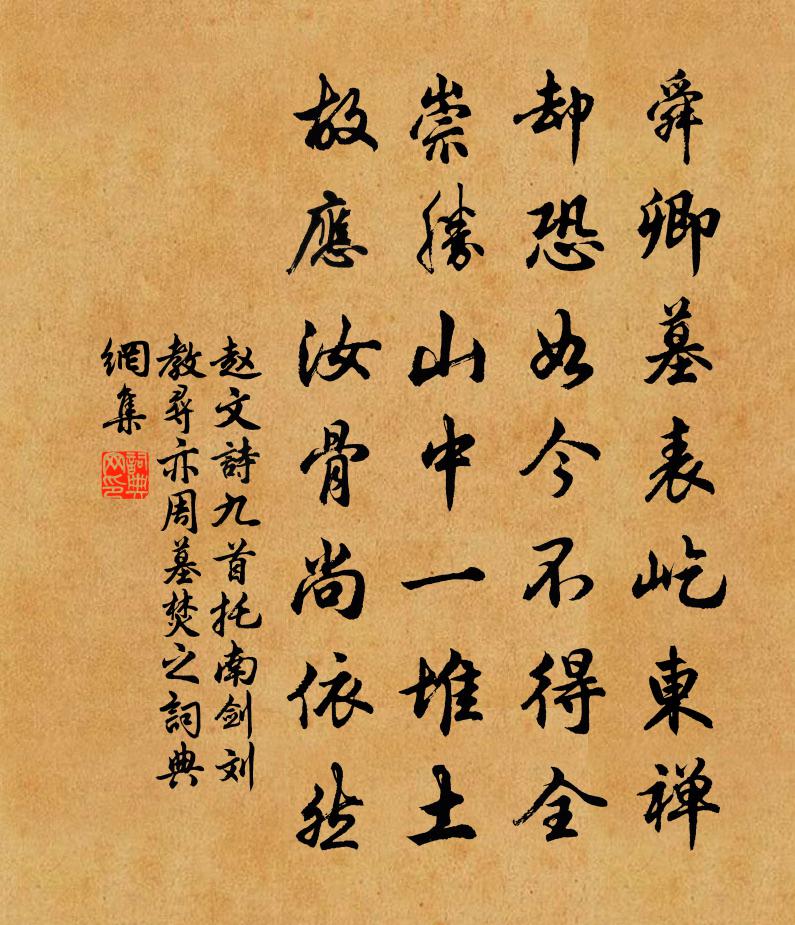 舜卿墓表屹東禅
却恐如今不得全
崇勝山中一堆土
故應汝骨尚依然
赵文詩九首托南剑刘
教尋亦周墓焚之詞典
網集
詞典網印